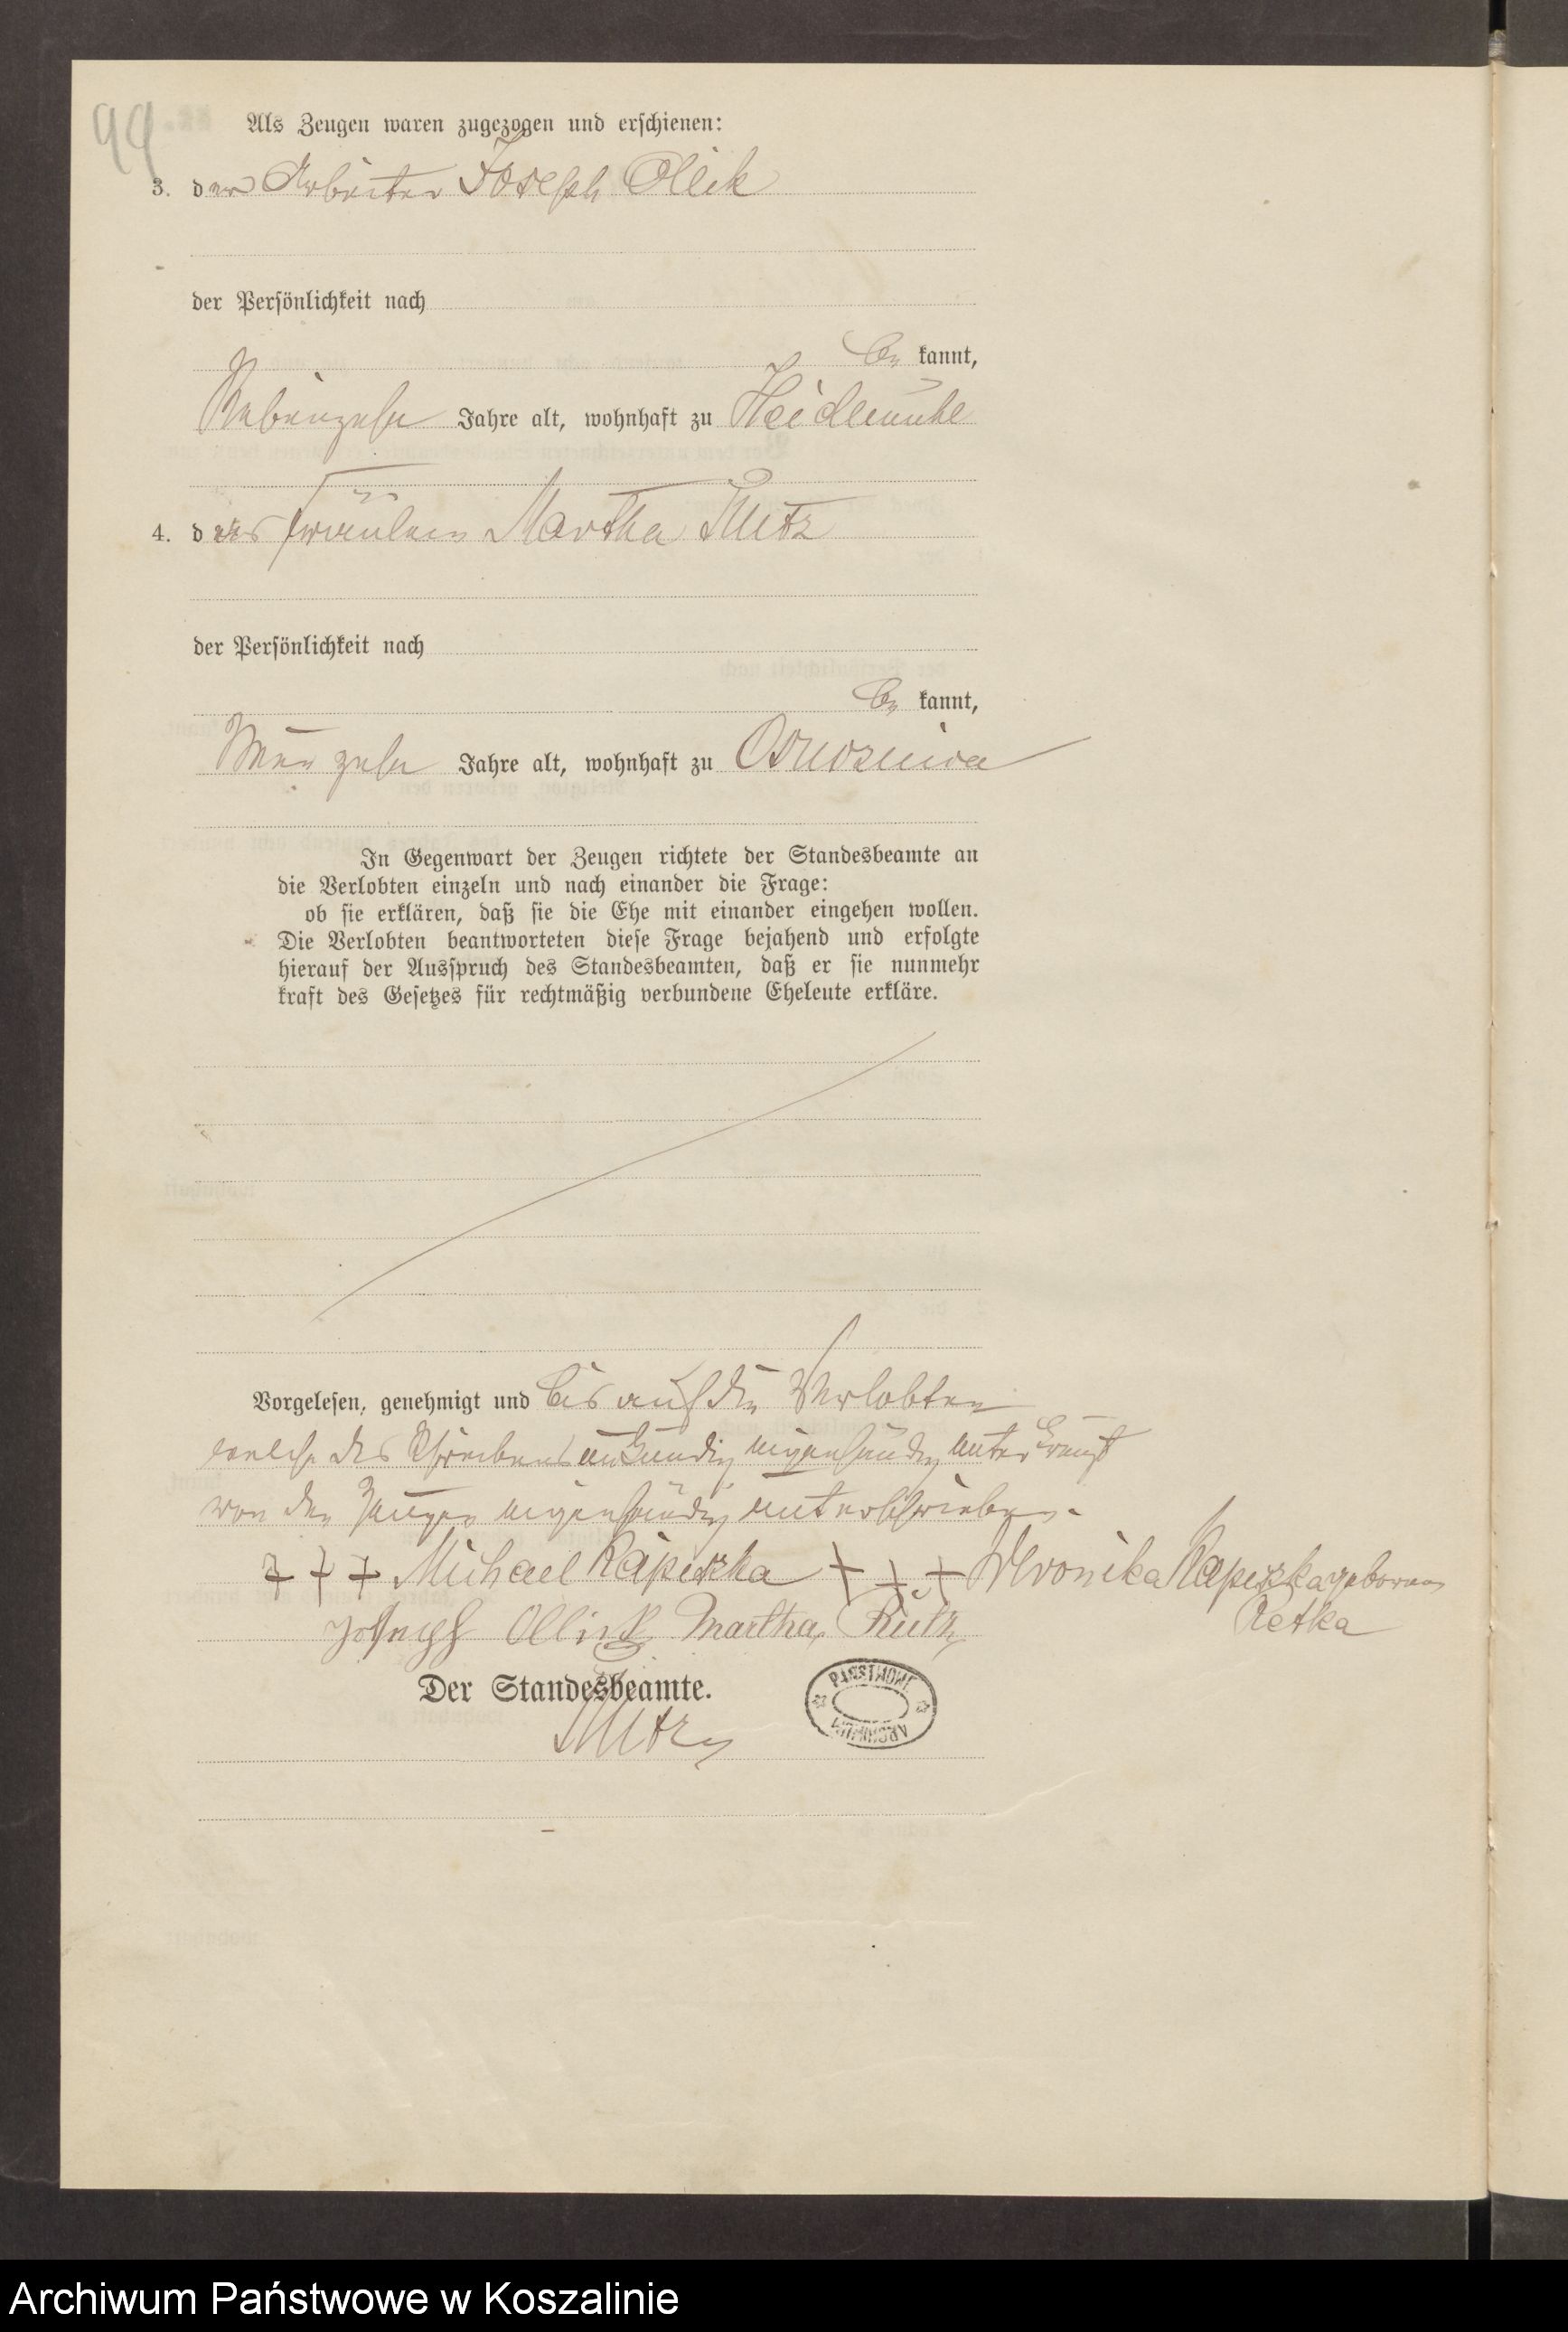 99
Als Zeugen waren zugezogen und erschienen:
3. der Arbeiter Joseph Ollik
der Persönlichkeit nach
be kannt,
Siebenzehn Jahre alt, wohnhaft zu Heidemühl
4. das Fräulein Martha Rutz
der Persönlichkeit nach
be kannt,
Neunzehn Jahre alt, wohnhaft zu
In Gegenwart der Zeugen richtete der Standesbeamte an
die Verlobten einzeln und nach einander die Frage:
ob sie erklären, daß sie die Ehe mit einander eingehen wollen.
Die Verlobten beantworteten diese Frage bejahend und erfolgte
hierauf der Ausspruch des Standesbeamten, daß er sie nunmehr
kraft des Gesetzes für rechtmäßig verbundene Eheleute erkläre.
Vorgelesen, genehmigt und bis auf die Verlobten
welche des Schreibens unkundig eigenhändig unterkreuzt
von den Zeugen eigenhändig unterschrieben.
+ + + Michael Rapiszka + + + Veronika Rapiszka geborene
Retka
Joseph Ollik Martha Rutz
Der Standesbeamte.
Rutz
PAŃSTWOWE ARCHIWUM
Archiwum Państwowe w Koszalinie